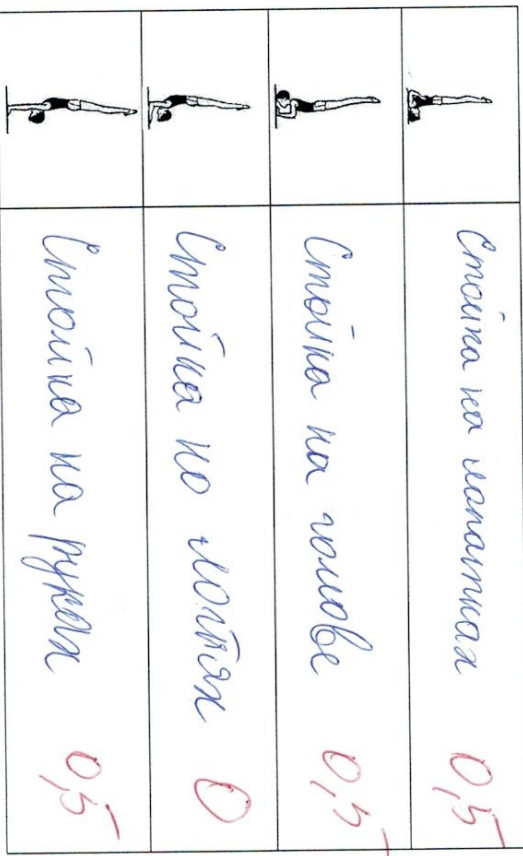 Стойка на лопатках 0,5
Стойка на голове 0,5
Стойка но локтях 0
Стойка на руках 0,5